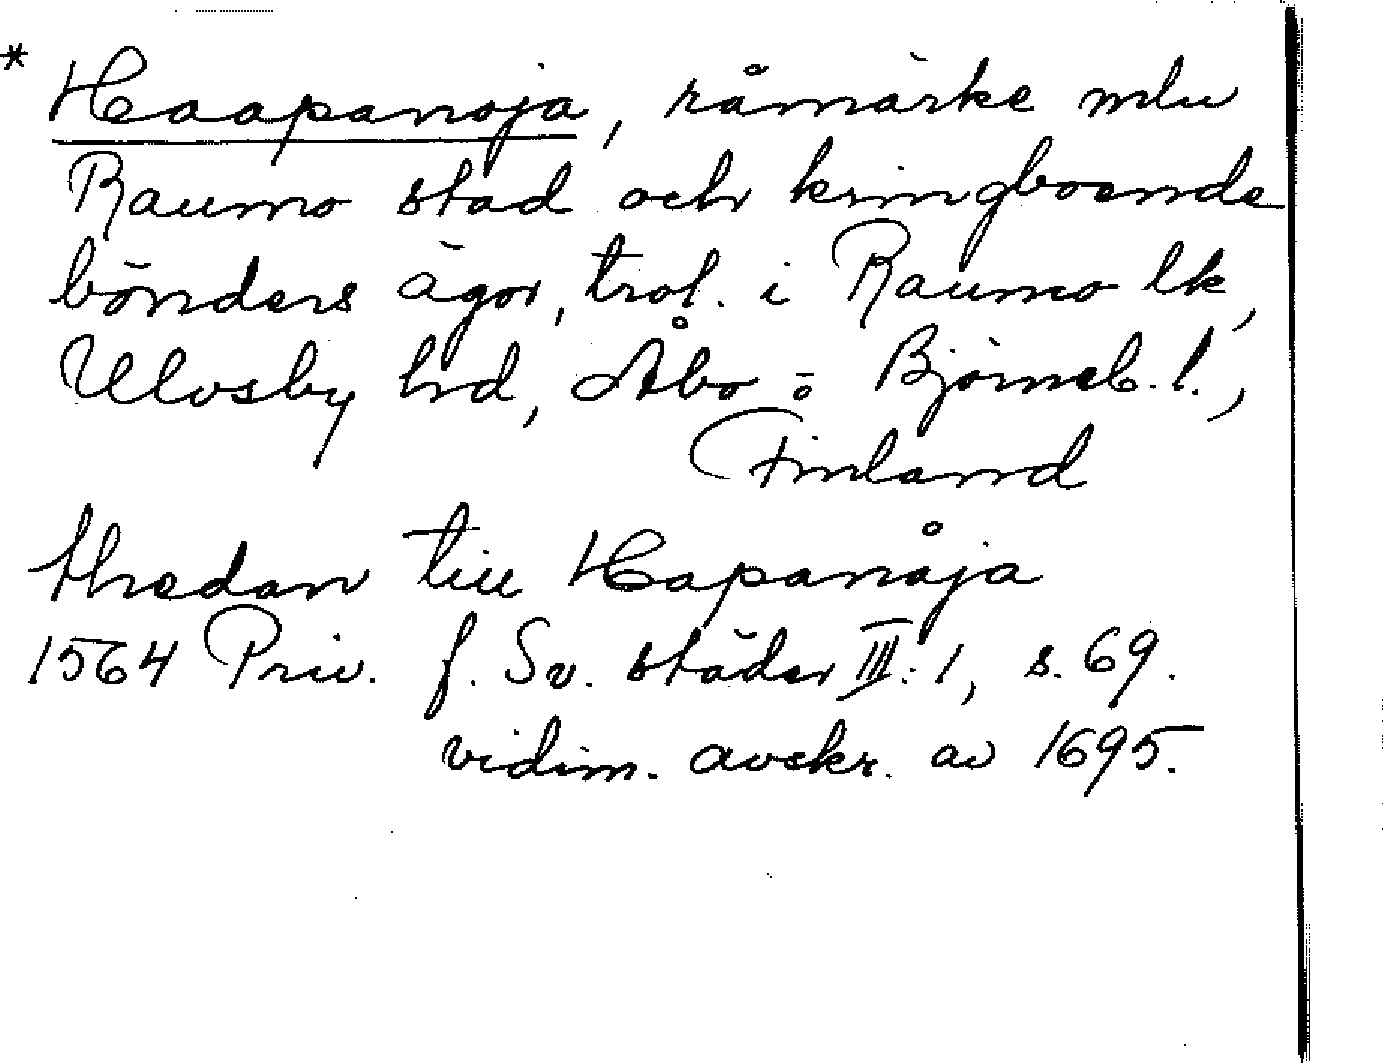 * Haapanoja, råmärke mlu
Raumo stad och kringboende
bönders ägor, trol. i Raumo lk,
Ulvsby hd, Åbo o Björneb. l.,
Finland
thedan till Hapanåja
1564 Priv. f. Sv. städer III:1, s. 69.
vidim. avskr. av 1695.